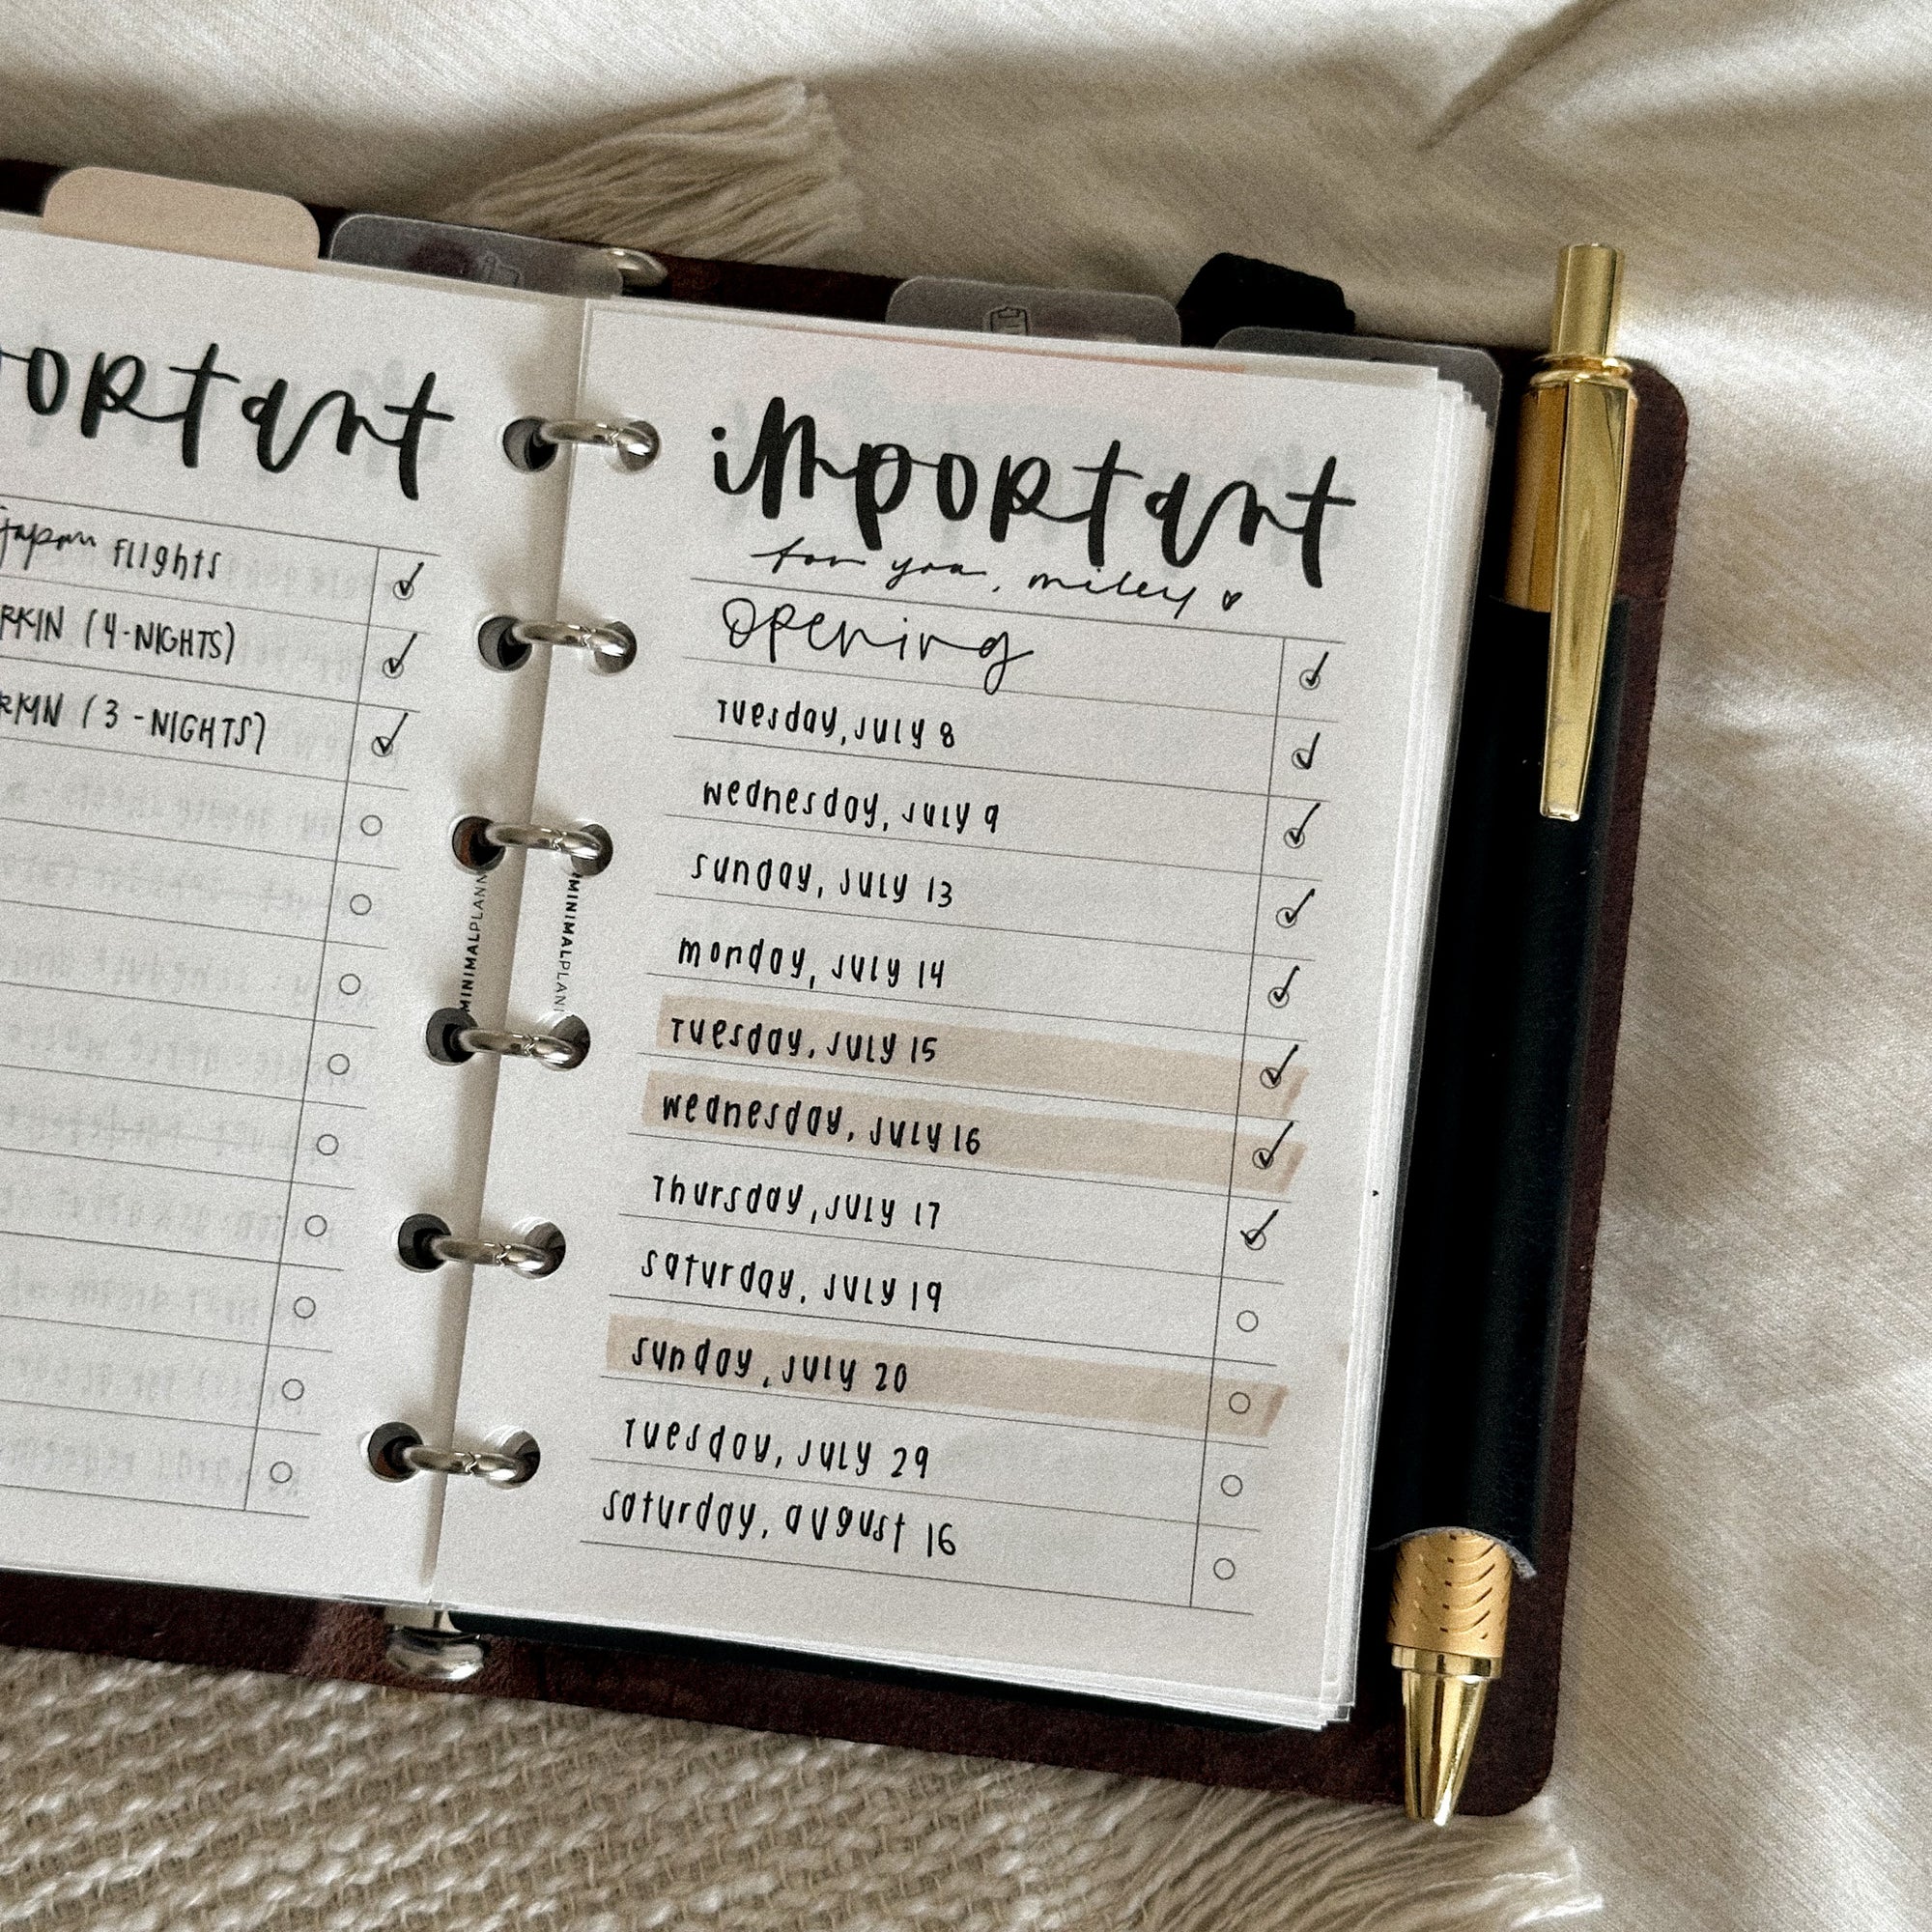 ortant
Japan Flights
RKIN (4-NIGHTS)
RKIN (3-NIGHTS)
MINIMALPLANN
MINIMALPLAN
important
for you, miley
opening
Tuesday, July 8
wednesday, July 9
sunday, July 13
monday, July 14
Tuesday, July 15
wednesday, July 16
Thursday, July 17
saturday, July 19
sunday, July 20
Tuesday, July 29
saturday, august 16